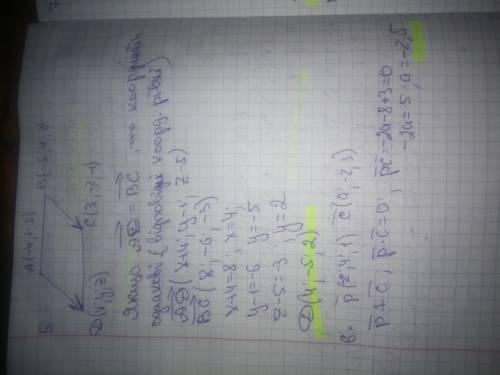 5
A(-4; 1; 5)
B(-5;
C(3; -7; -1)
D(x; y; z)
Якщо AD = BC, то координати
однакові (відповідні коорд. рівні)
AD (x+4; y-1; z-5)
BC (8; -6; -3)
x+4=8; x=4;
y-1=-6 y=-5
z-5=-3; y=2
D(4; -5; 2)
6. p(-2; 4; 1) c(a; -2; 3)
p⊥c; p·c=0; pc=-2a-8+3=0
-2a=5; a=-2,5